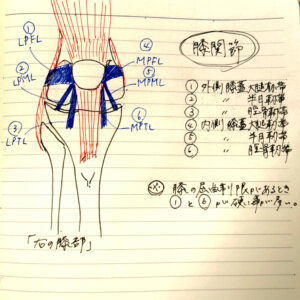 膝関節
① LPFL
② LPML
③ LPTL
④ MPFL
⑤ MPML
⑥ MPTL
① 外側膝蓋大腿靭帯
② 〃 半月靭帯
③ 〃 脛骨靭帯
④ 内側膝蓋大腿靭帯
⑤ 〃 半月靭帯
⑥ 〃 脛骨靭帯
※ 膝の屈曲制限があるとき
①と⑥が硬い事が多い。
「右の膝部」